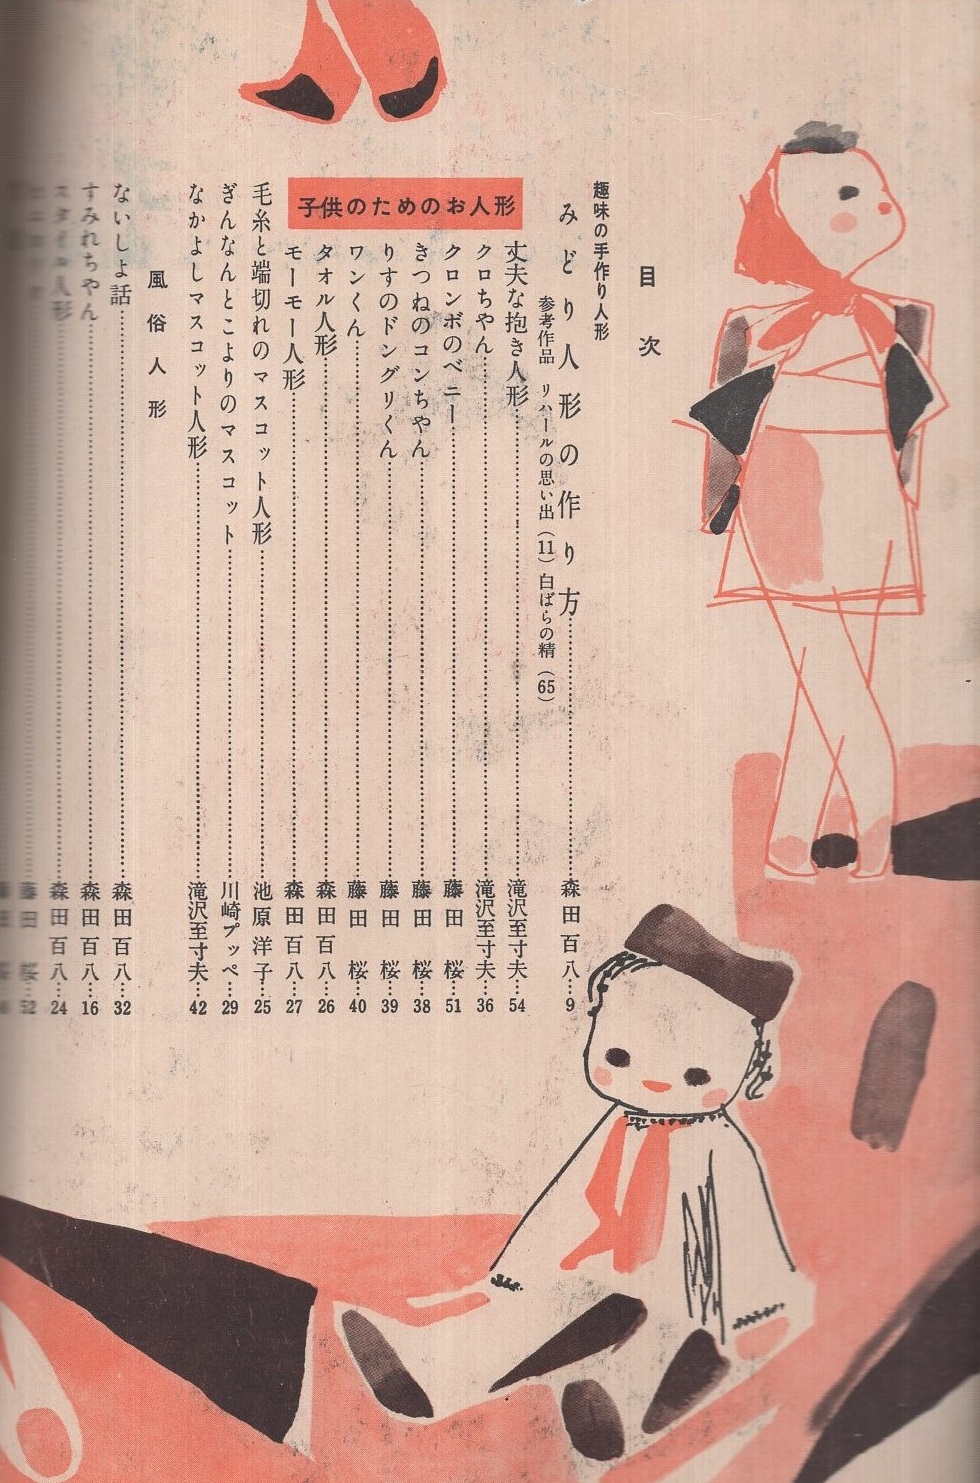 目次
趣味の手作り人形
みどり人形の作り方……森田百八…9
参考作品 リハールの思い出（11）白ばらの精（65）
子供のためのお人形
丈夫な抱き人形……滝沢至寸夫…54
クロちゃん……滝沢至寸夫…36
クロンボのベニー……藤田桜…51
きつねのコンちゃん……藤田桜…38
りすのドングリくん……藤田桜…39
ワンくん……藤田桜…40
タオル人形……森田百八…26
モーモー人形……森田百八…27
毛糸と端切れのマスコット人形……池原洋子…25
ぎんなんとこよりのマスコット……川崎プッペ…29
なかよしマスコット人形……滝沢至寸夫…42
風俗人形
ないしよ話……森田百八…32
すみれちゃん……森田百八…16
スタイル人形……森田百八…24
藤田桜…52